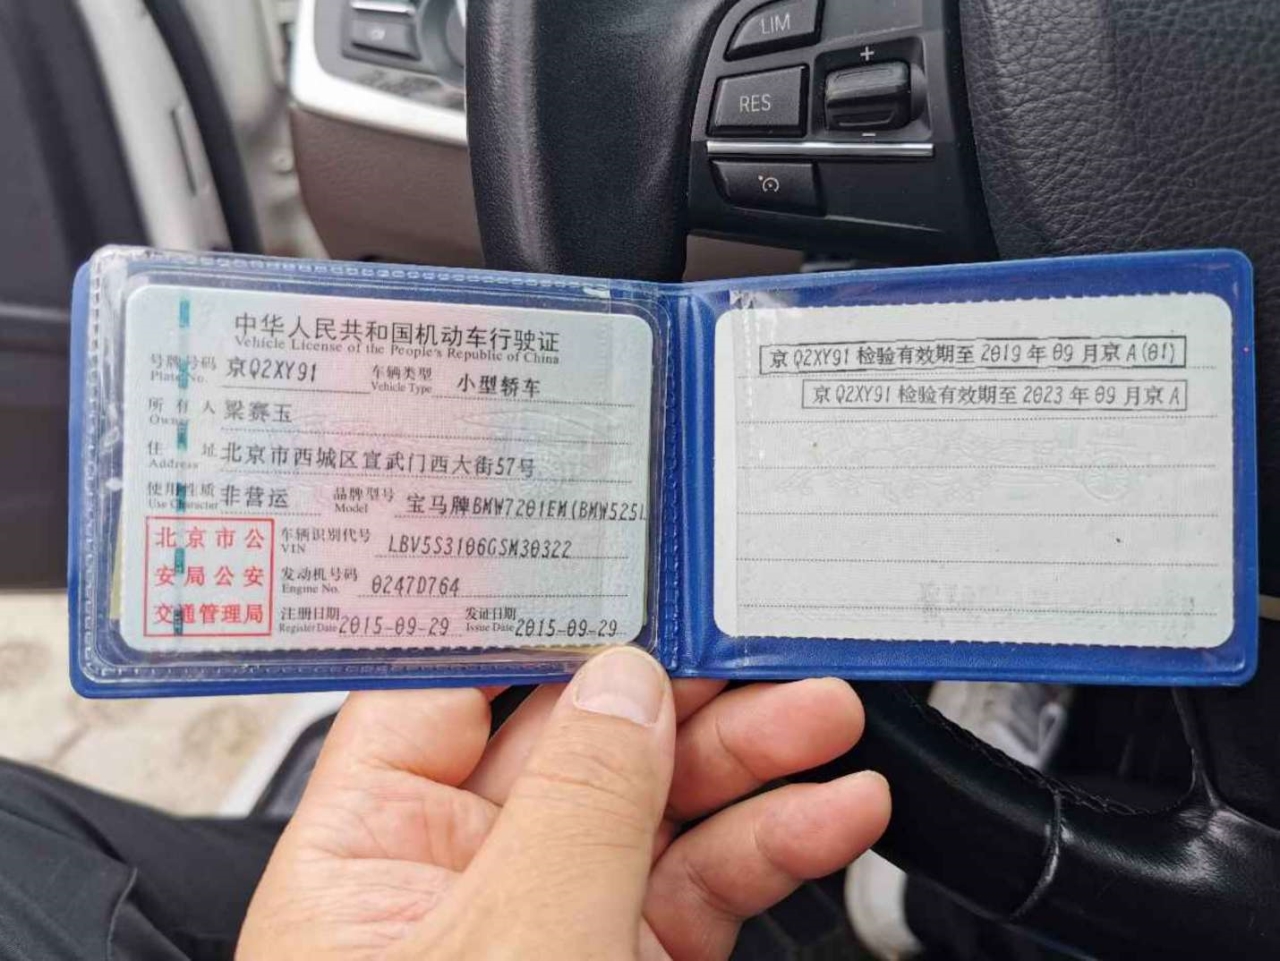 LIM
+
RES
−
中华人民共和国机动车行驶证
Vehicle License of the People's Republic of China
号牌号码 京Q2XY91 车辆类型 小型轿车
Plate No. Vehicle Type
所有人 梁赛玉
Owner
住址 北京市西城区宣武门西大街57号
Address
使用性质 非营运 品牌型号 宝马牌BMW7201EM(BMW525L
Use Character Model
北京市公安局公安交通管理局
车辆识别代号 LBV5S3106GSM30322
VIN
发动机号码 0247D764
Engine No.
注册日期 2015-09-29 发证日期 2015-09-29
Register Date Issue Date
京Q2XY91 检验有效期至 2019 年 09 月京 A(01)
京Q2XY91 检验有效期至 2023 年 09 月京 A